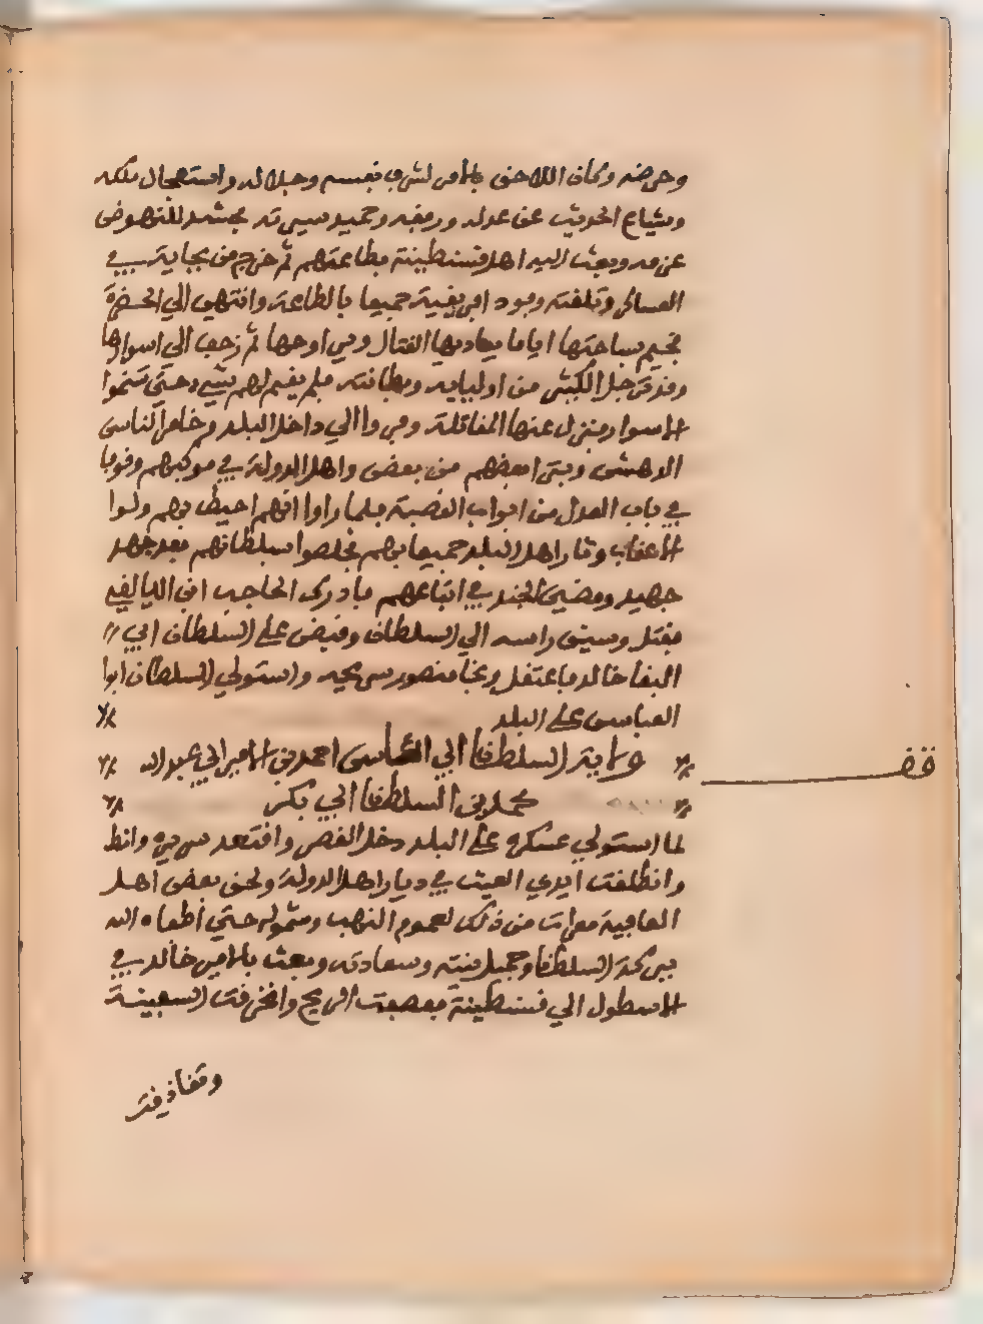 وحرضه وكان اللاحق بالامر لشرف نفسه وجلاله واستعجال ملكه
وشياع الحديث عن عدله ورفقه وحميد سيرته فحشد للنهوض
عزمه وبعث اليه اهل قسنطينة بطاعتهم ثم خرج من بجاية في
العساكر وتلقته وفود افريقية جميعا بالطاعة وانتهى الي الحضرة
فخيم بساحتها اياما يغاديها القتال ويراوحها ثم زحف الي اسوارها
وقد ترجل الكبش من اوليايه وبطانته فلم يقم لهم شيء حتى تسنموا
الاسوار فنزل عنها المقاتلة وفروا الي داخل البلد وخامر الناس
الدهش وتبرا بعضهم من بعض واهل الدولة في موكبهم وقوفا
في باب الغدر من ابواب القصبة فلما راوا انهم احيط بهم ولوا
الاعقاب وثار اهل البلد جميعا بهم فخلصوا بسلطانهم بعد جهد
جهيد ومضى الجند في اتباعهم فادرك الحاجب ابن اليالقي
فقتل وسيق راسه الي السلطان وقبض على السلطان ابي
البقا خالد فاعتقل ونجا منصور سريحه واستولي السلطان ابوا
العباس على البلد
ولاية السلطان ابي العباس احمد بن الامير ابي عبد الله
محمد بن السلطان ابي بكر
قف
لما استولي عسكره على البلد دخل القصر واقتعد سريره وانط
وانطلقت ايدي العيث في ديار اهل الدولة ولحق بعض اهل
العافية معرات من ذلك لعموم النهب وشموله حتى اطفاه الله
ببركة السلطان وجميل نيته وسعادته وبعث بالامير خالد في
الاسطول الي قسنطينة فعصفت الريح وانخرقت السفينة
وتقاذفت